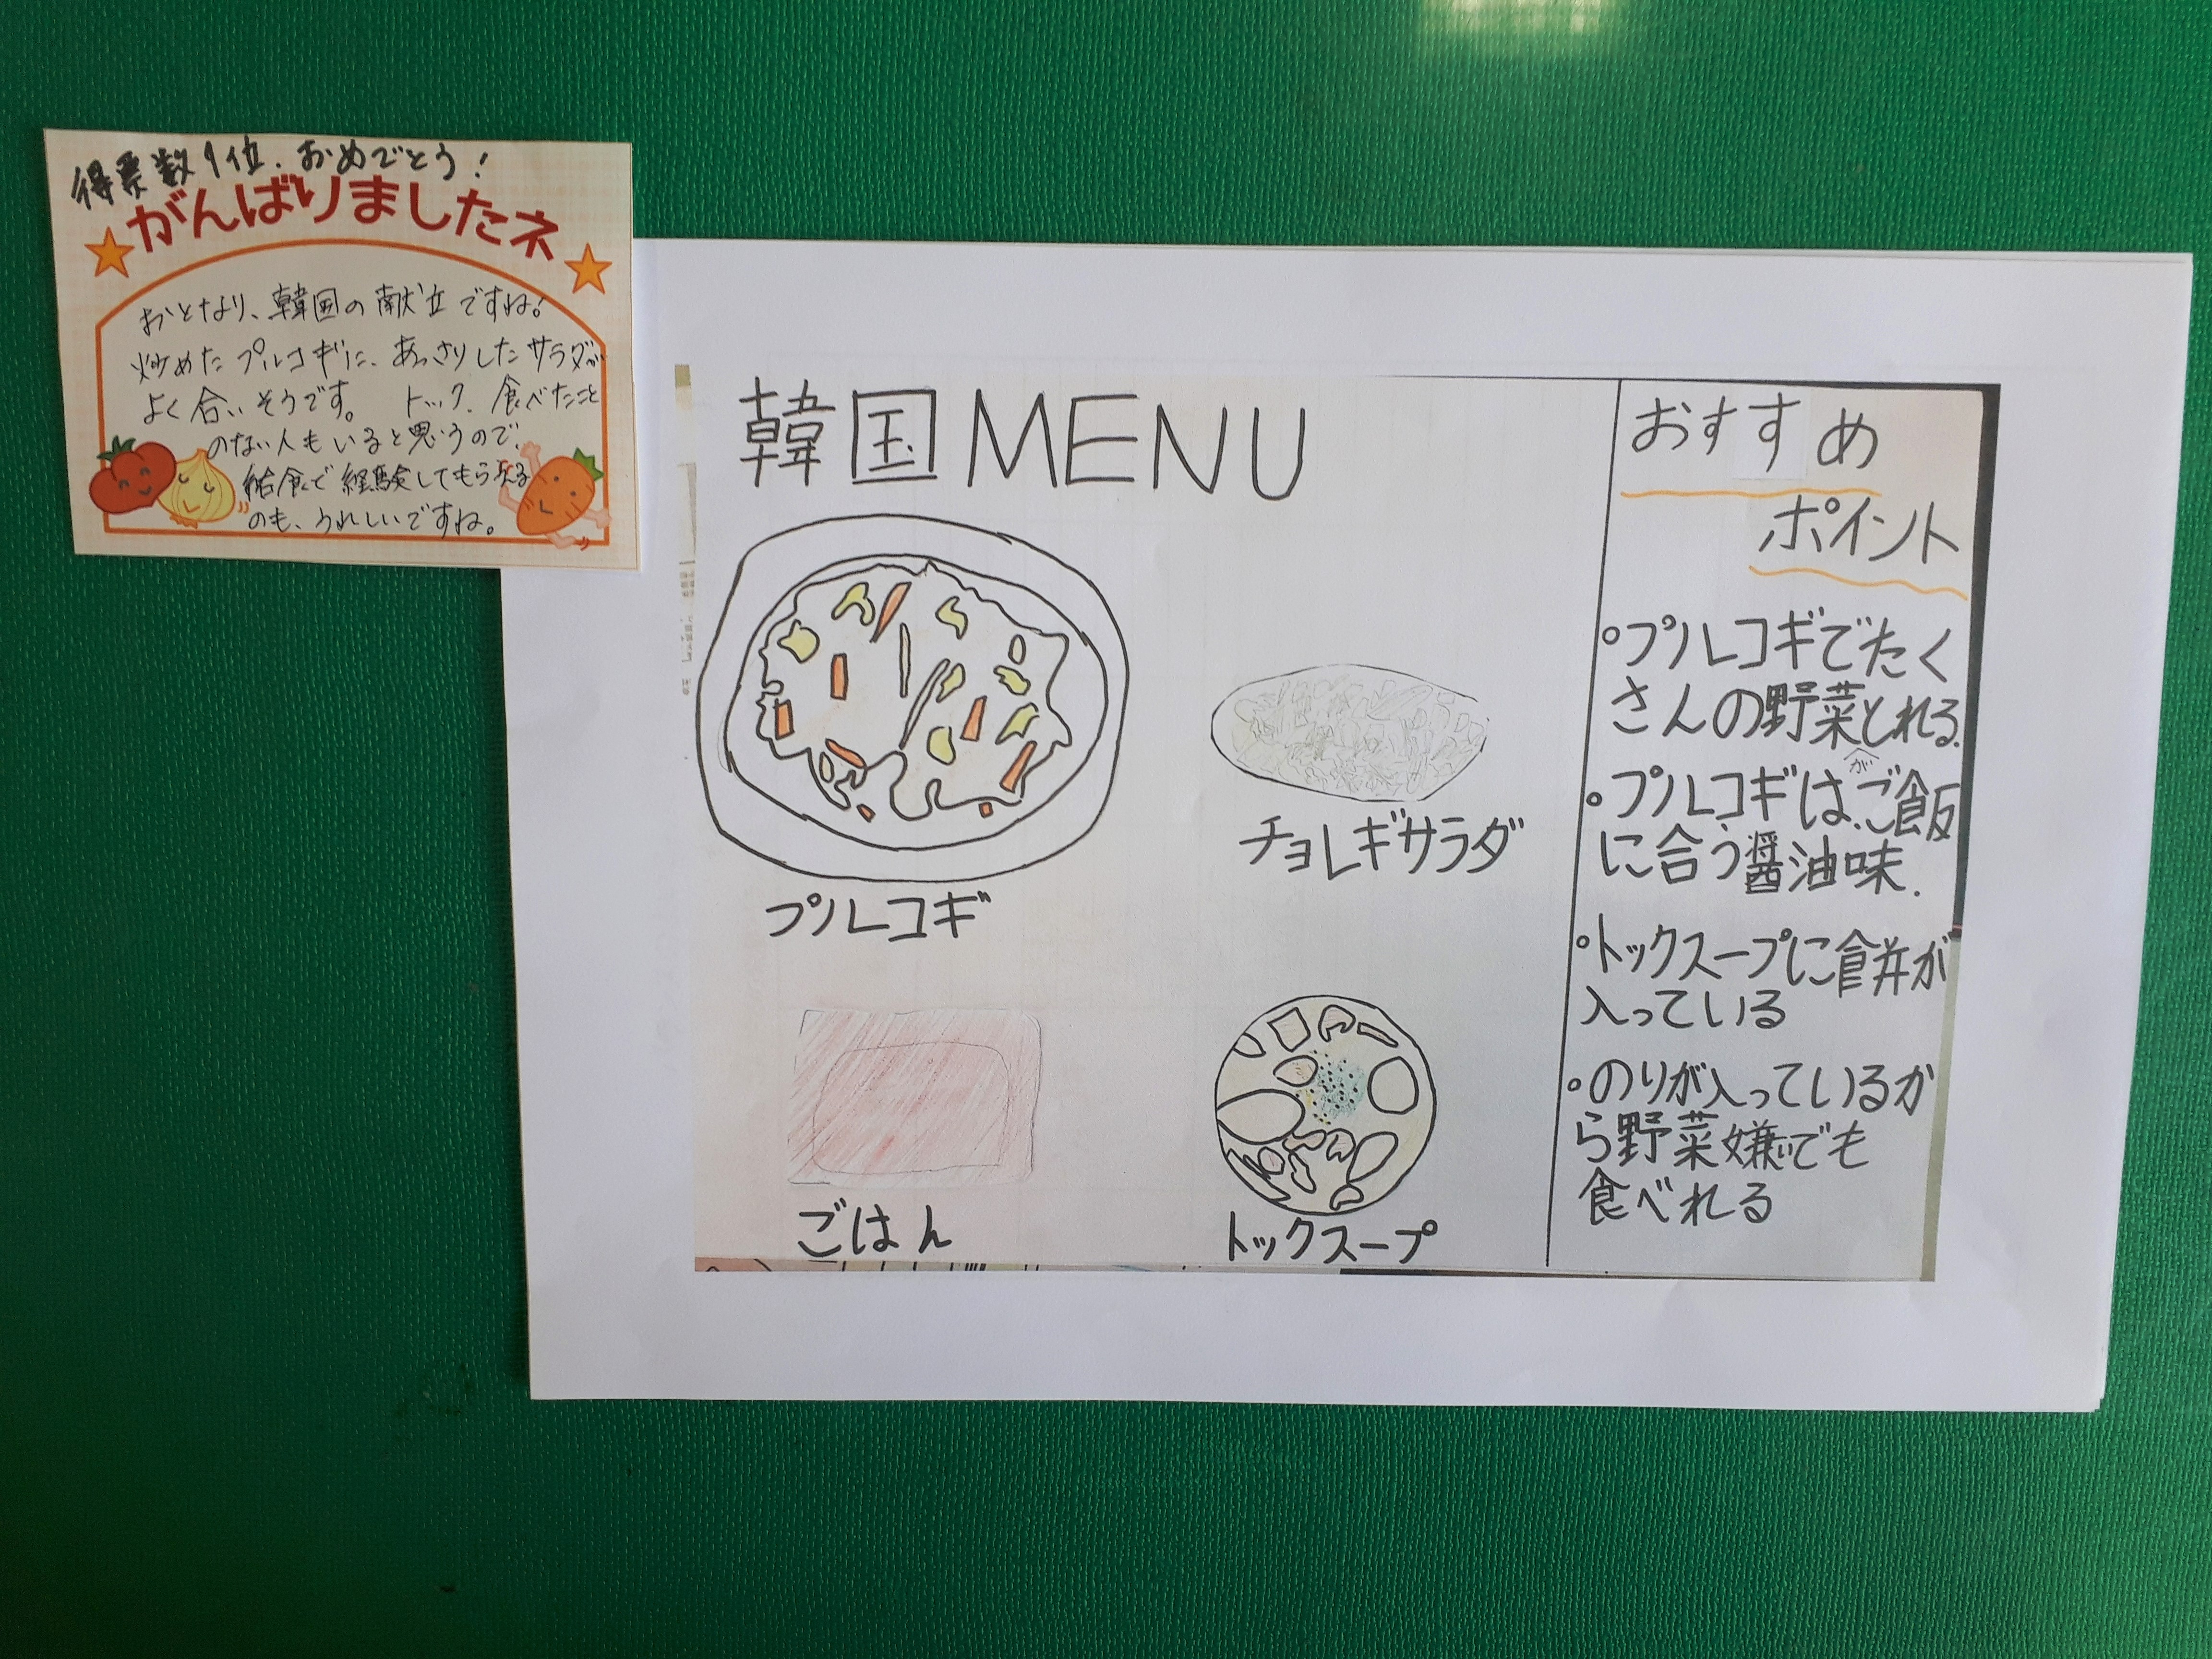 得票数1位.おめでとう!
がんばりましたネ
おとなり、韓国の献立ですね!
炒めたプルコギに、あっさりしたサラダが
よく合いそうです。 トック、食べたこと
のない人もいると思うので、
給食で経験してもらえる
のも、うれしいですね。
韓国MENU
プルコギ
チョレギサラダ
ごはん
トックスープ
おすすめ
ポイント
・プルコギでたく
さんの野菜がとれる.
・プルコギは、ご飯
に合う醤油味.
・トックスープに餅が
入っている
・のりが入っているか
ら野菜嫌いでも
食べれる